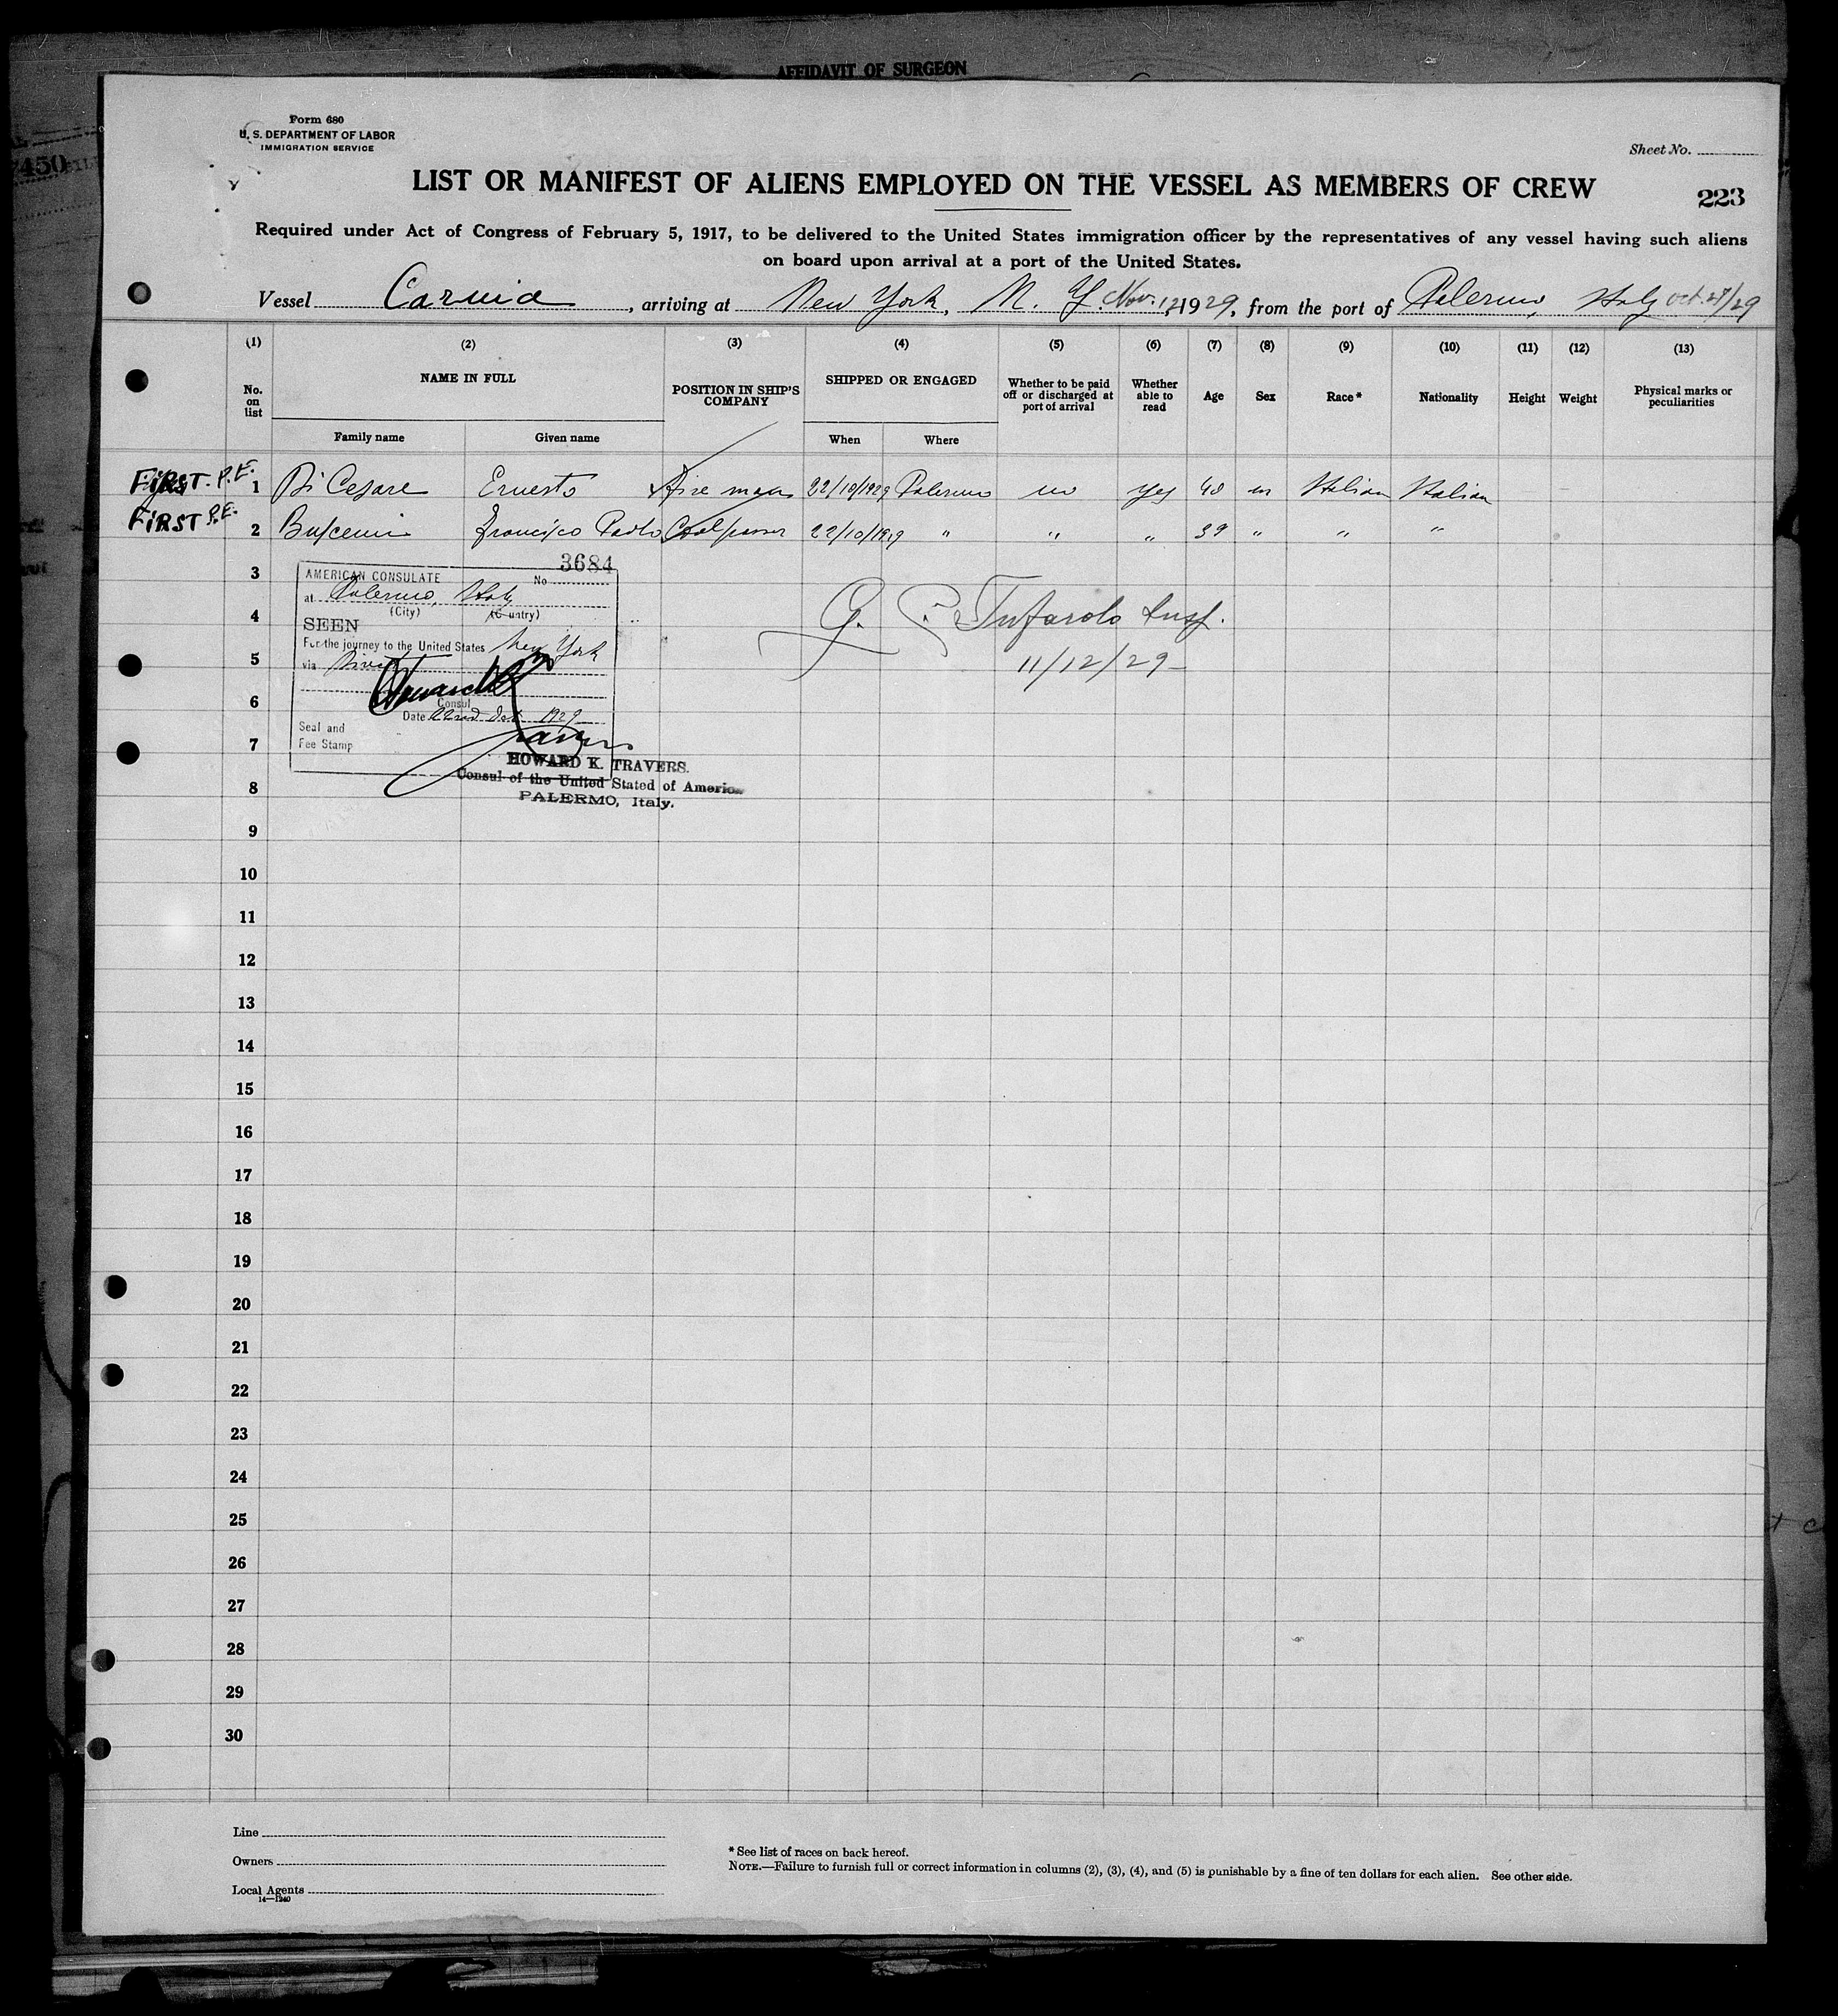 AFFIDAVIT OF SURGEON
450
Form 680
U. S. DEPARTMENT OF LABOR
IMMIGRATION SERVICE
Sheet No.
LIST OR MANIFEST OF ALIENS EMPLOYED ON THE VESSEL AS MEMBERS OF CREW
223
Required under Act of Congress of February 5, 1917, to be delivered to the United States immigration officer by the representatives of any vessel having such aliens
on board upon arrival at a port of the United States.
Vessel Carnia, arriving at New York, N. Y. Nov. 12, 1929, from the port of Palermo, Italy Oct. 27/29
(1) (2) (3) (4) (5) (6) (7) (8) (9) (10) (11) (12) (13)
No. on list NAME IN FULL POSITION IN SHIP'S COMPANY SHIPPED OR ENGAGED Whether to be paid off or discharged at port of arrival Whether able to read Age Sex Race* Nationality Height Weight Physical marks or peculiarities
Family name Given name When Where
FIRST P.E. 1 Di Cesare Ernesto Fire man 22/10/1929 Palermo no yes 40 m Italian Italian
FIRST P.E. 2 Buscemi Francisco Paolo Coalpasser 22/10/1929 " " " 39 " " "
3
4
5
6
7
8
9
10
11
12
13
14
15
16
17
18
19
20
21
22
23
24
25
26
27
28
29
30
AMERICAN CONSULATE No 3684
at Palermo, Italy
(City) (Country)
SEEN
For the journey to the United States New York
via Direct
Consul
Date 22nd Oct 1929
Seal and
Fee Stamp
HOWARD K. TRAVERS.
Consul of the United Stated of America
PALERMO, Italy.
G. P. Tufarolo Insp.
11/12/29
Line
Owners
Local Agents
14—1240
* See list of races on back hereof.
NOTE.—Failure to furnish full or correct information in columns (2), (3), (4), and (5) is punishable by a fine of ten dollars for each alien. See other side.